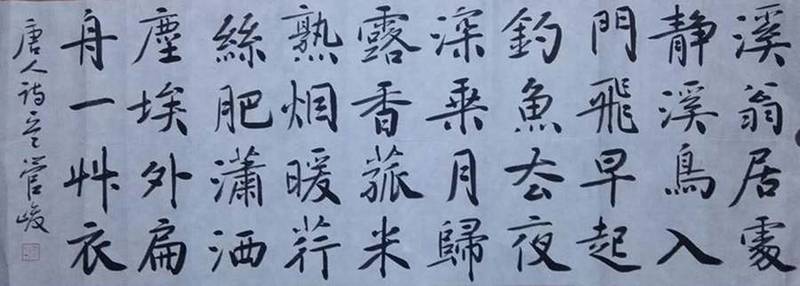 溪翁居處
静溪鳥入
門飛早起
釣魚去夜
深乗月歸
露香菰米
熟烟暖荇
絲肥瀟洒
塵埃外扁
舟一艸衣
唐人詩管峻